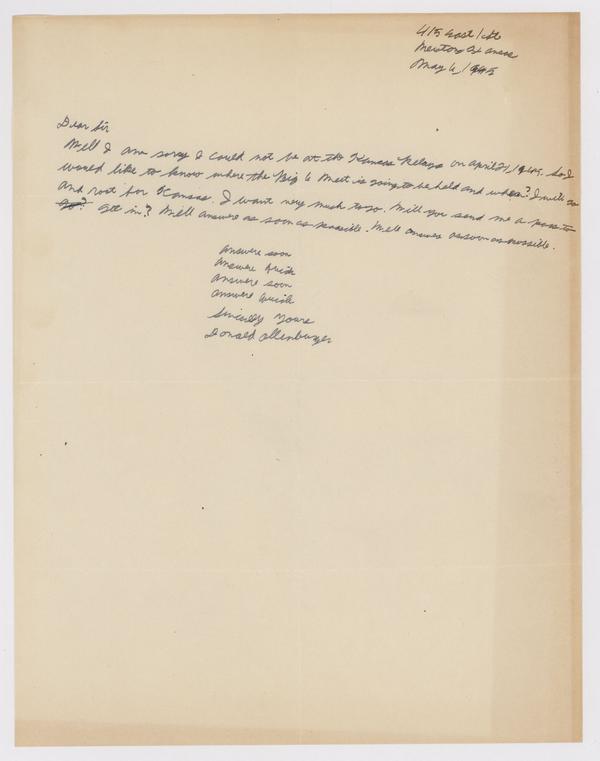 415 East 1st
Newton Kansas
May 6, 1945
Dear Sir
Well I am sorry I could not be at the Kansas Relays on april 21, 1945. So I
would like to know where the Big 6 Meet is going to be held and when? I will go
and root for Kansas. I want very much to go. Will you send me a pass to
go? get in? Well answere as soon as possible. Well answere as soon as possible.
answere soon
answere quick
answere soon
answere quick
Sincerely Yours
Donald Ollenburger